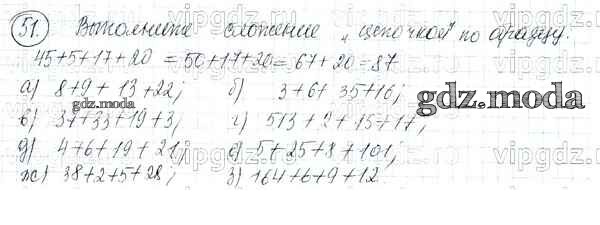 51. Выполните сложение „цепочкой" по образцу.
45+5+17+20 = 50+17+20 = 67+20 = 87.
а) 8+9+13+22; б) 3+61+35+16;
в) 37+33+19+3; г) 513+2+15+17;
д) 4+6+19+21; е) 5+25+8+101;
ж) 38+2+5+28; з) 164+6+9+12.
gdz.moda
gdz.moda
vipgdz
vipgdz.ru